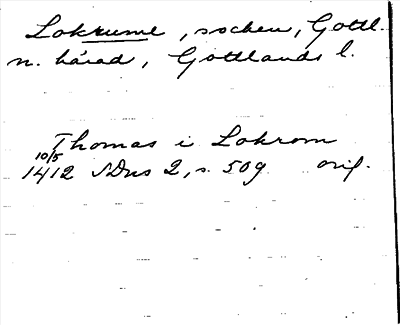 Lokrume, socken, Gottl.
n. härad, Gottlands l.
Thomas i Lokrom
10/5
1412 SDns 2, s. 509 orig.